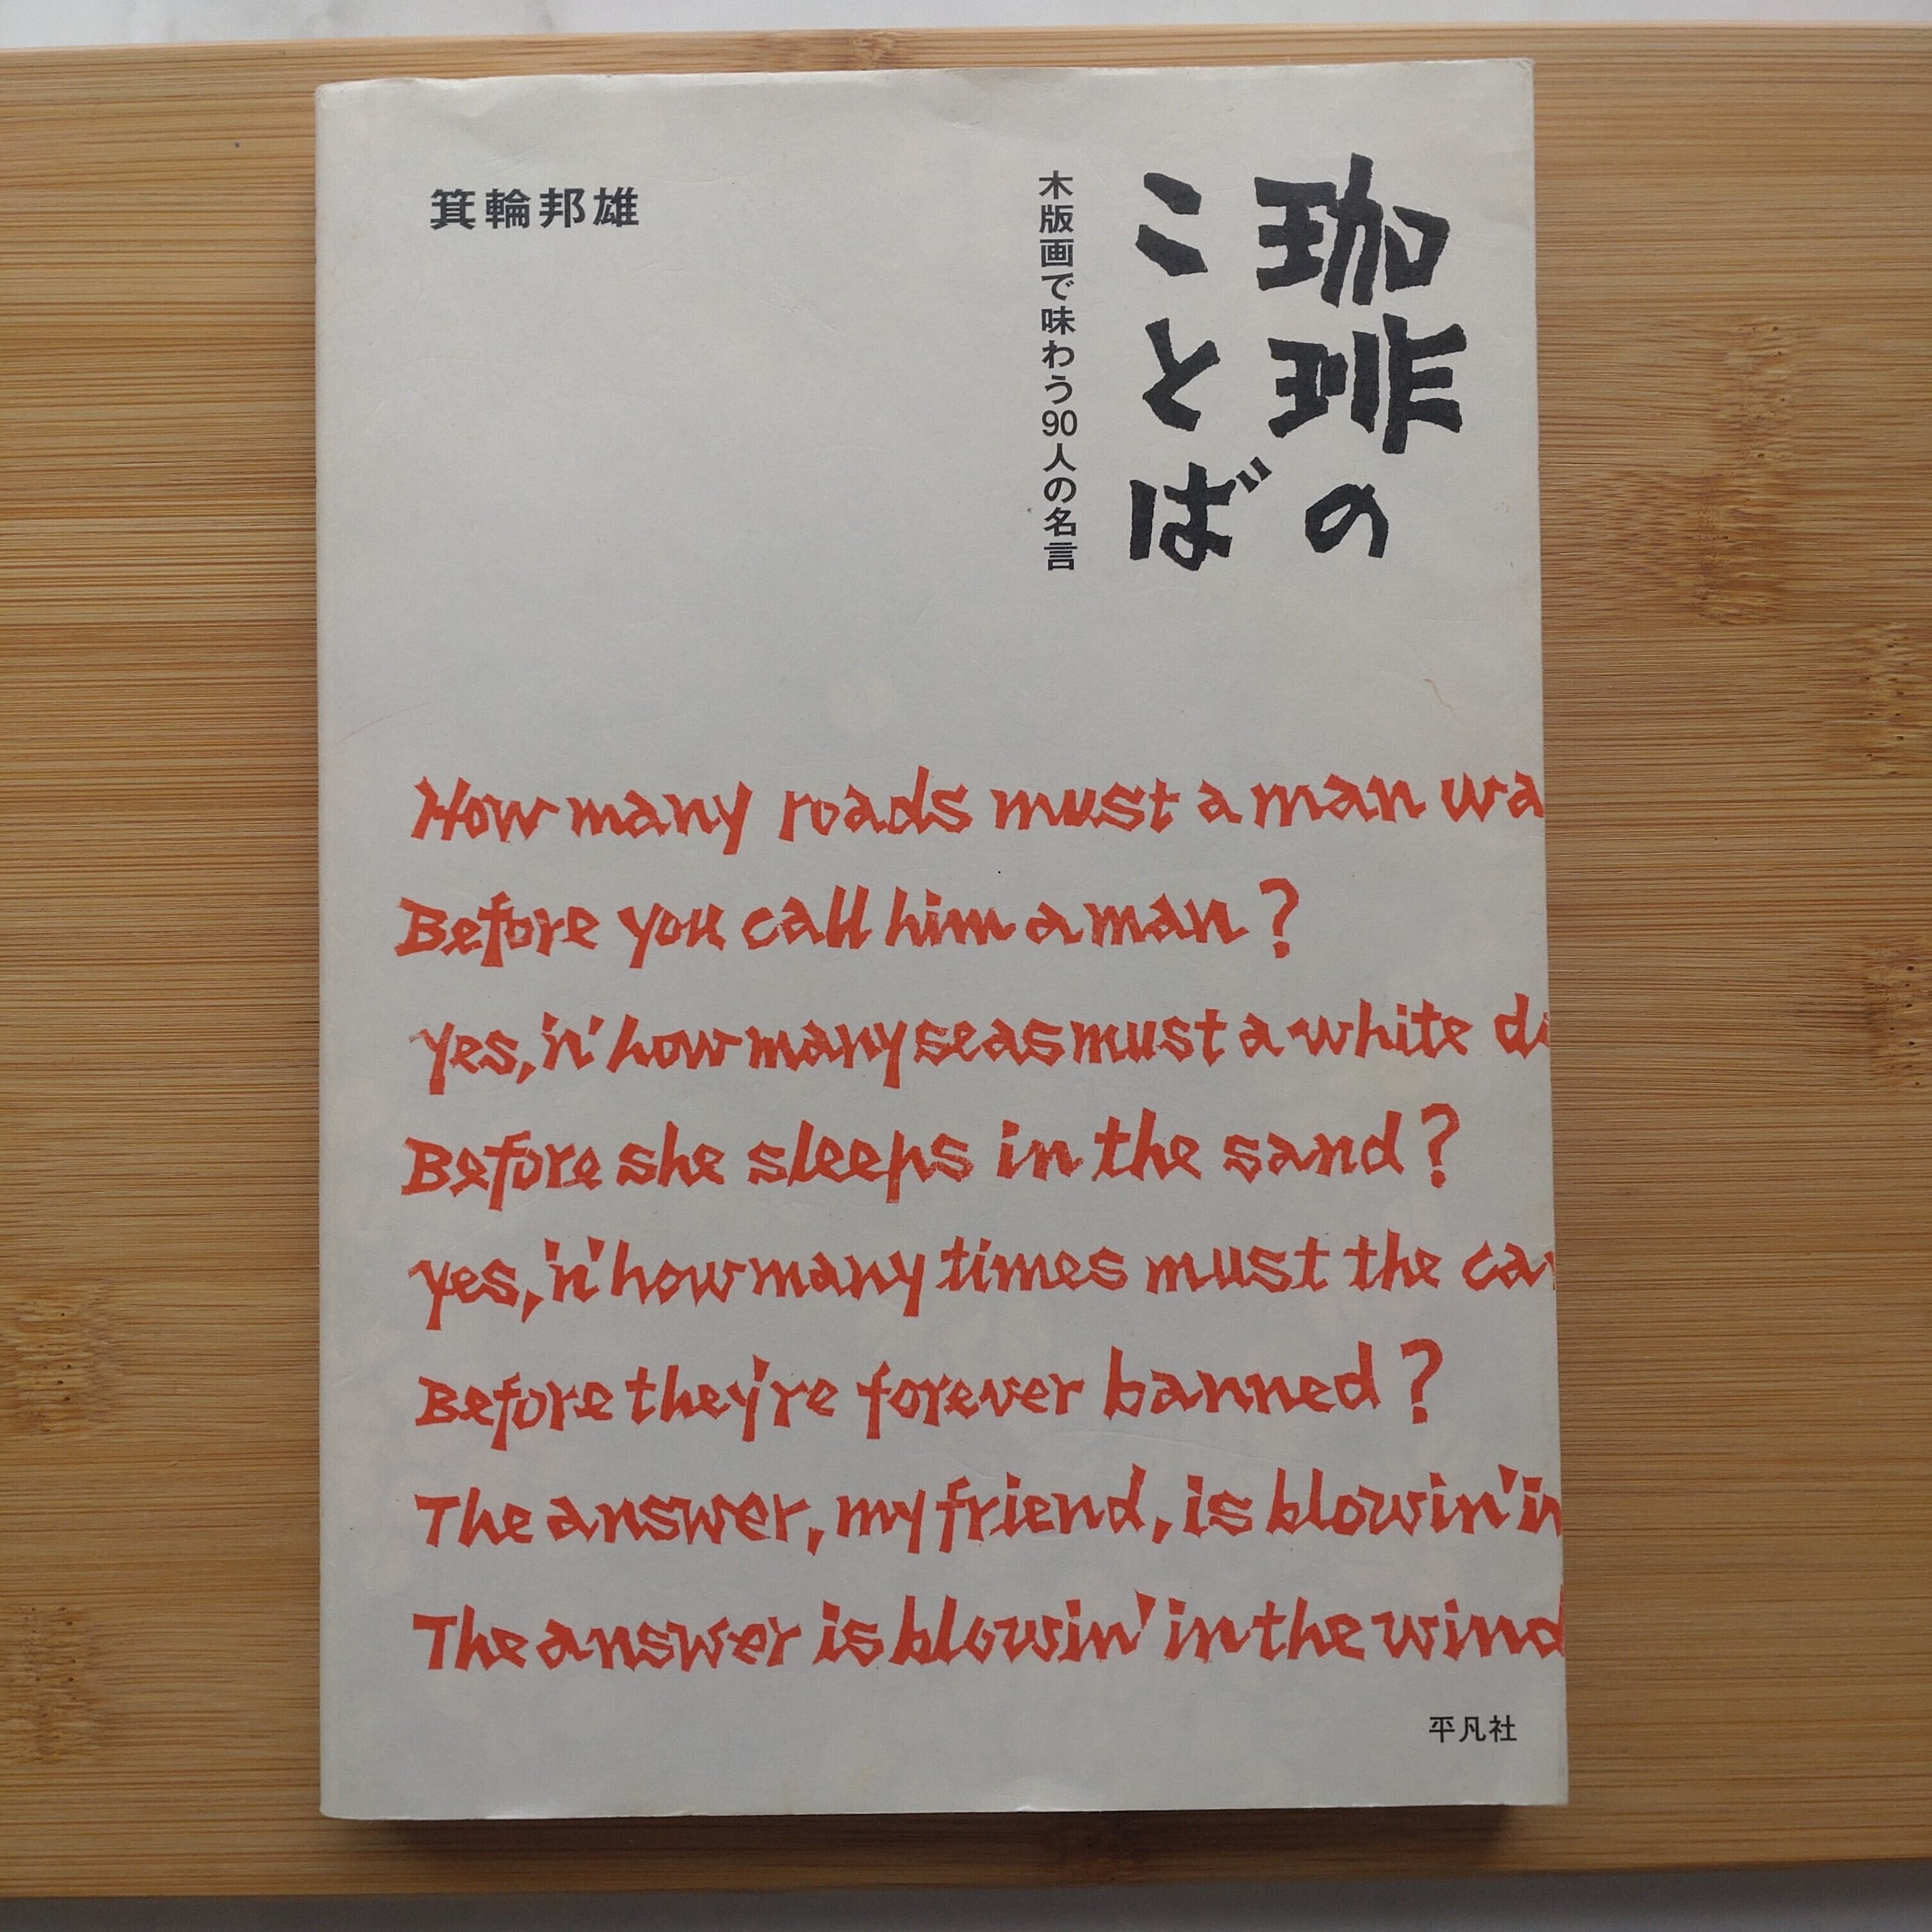 珈琲の
ことば
木版画で味わう90人の名言
箕輪邦雄
How many roads must a man wa
Before you call him a man?
yes,'n' how many seas must a white d
Before she sleeps in the sand?
yes,'n' how many times must the ca
Before they're forever banned?
The answer, my friend, is blowin' in
The answer is blowin' in the wind
平凡社